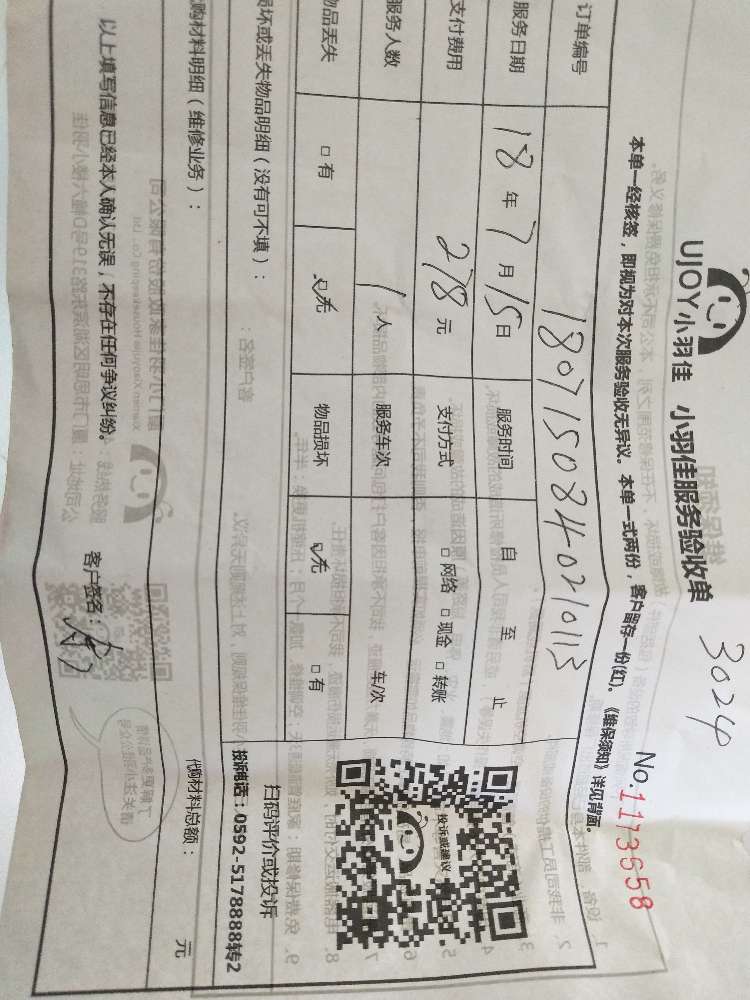 3024
UJOY小羽佳 小羽佳服务验收单
No.1173658
本单一经核签，即视为对本次服务验收无异议。本单一式两份，客户留存一份(红)。《维保须知》详见背面。
订单编号 180715084020113
服务日期 18年7月15日 服务时间 自 至 止
支付费用 278元 支付方式 □网络 □现金 □转账
服务人数 1人 服务车次 车/次
物品丢失 □有 ☑无 物品损坏 ☑无 □有
坏或丢失物品明细（没有可不填）：
投诉或建议
扫码评价或投诉
投诉电话：0592-5178888转2
购材料明细（维修业务）：
代购材料总额： 元
以上填写信息已经本人确认无误，不存在任何争议纠纷。
客户签名：